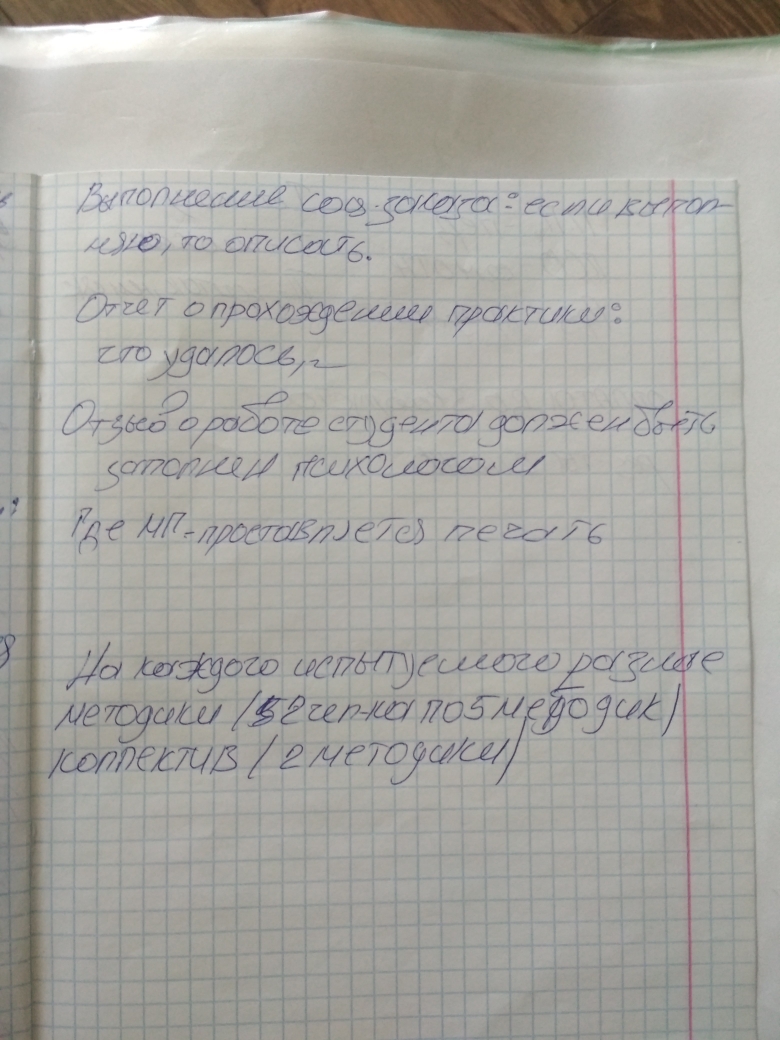 Выполнение соц. заказа: если выпол-
няю, то описать.
Отчет о прохождении практики:
что удалось,
Отзыв о работе студента должен быть
заполнен психологом
Где МП-проставляется печать
На каждого испытуемого разные
методики (2 чел-ка по 5 методик)
коллектив (2 методики)